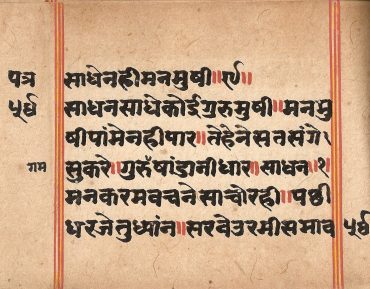 पत्र साधेनहीमनमुषी॥९॥
५९ साधनसाधेकोईगुरुमुषी॥मनमु
षीपांमेनहीपार॥तेहेनेसतसंगे
सुकरे॥गुरुषांडानीधार॥साधन॥१
मनकरमवचनेसाचोरही॥पछी
धरजेतुध्यांन॥सरवेउरमीसमाव ५९